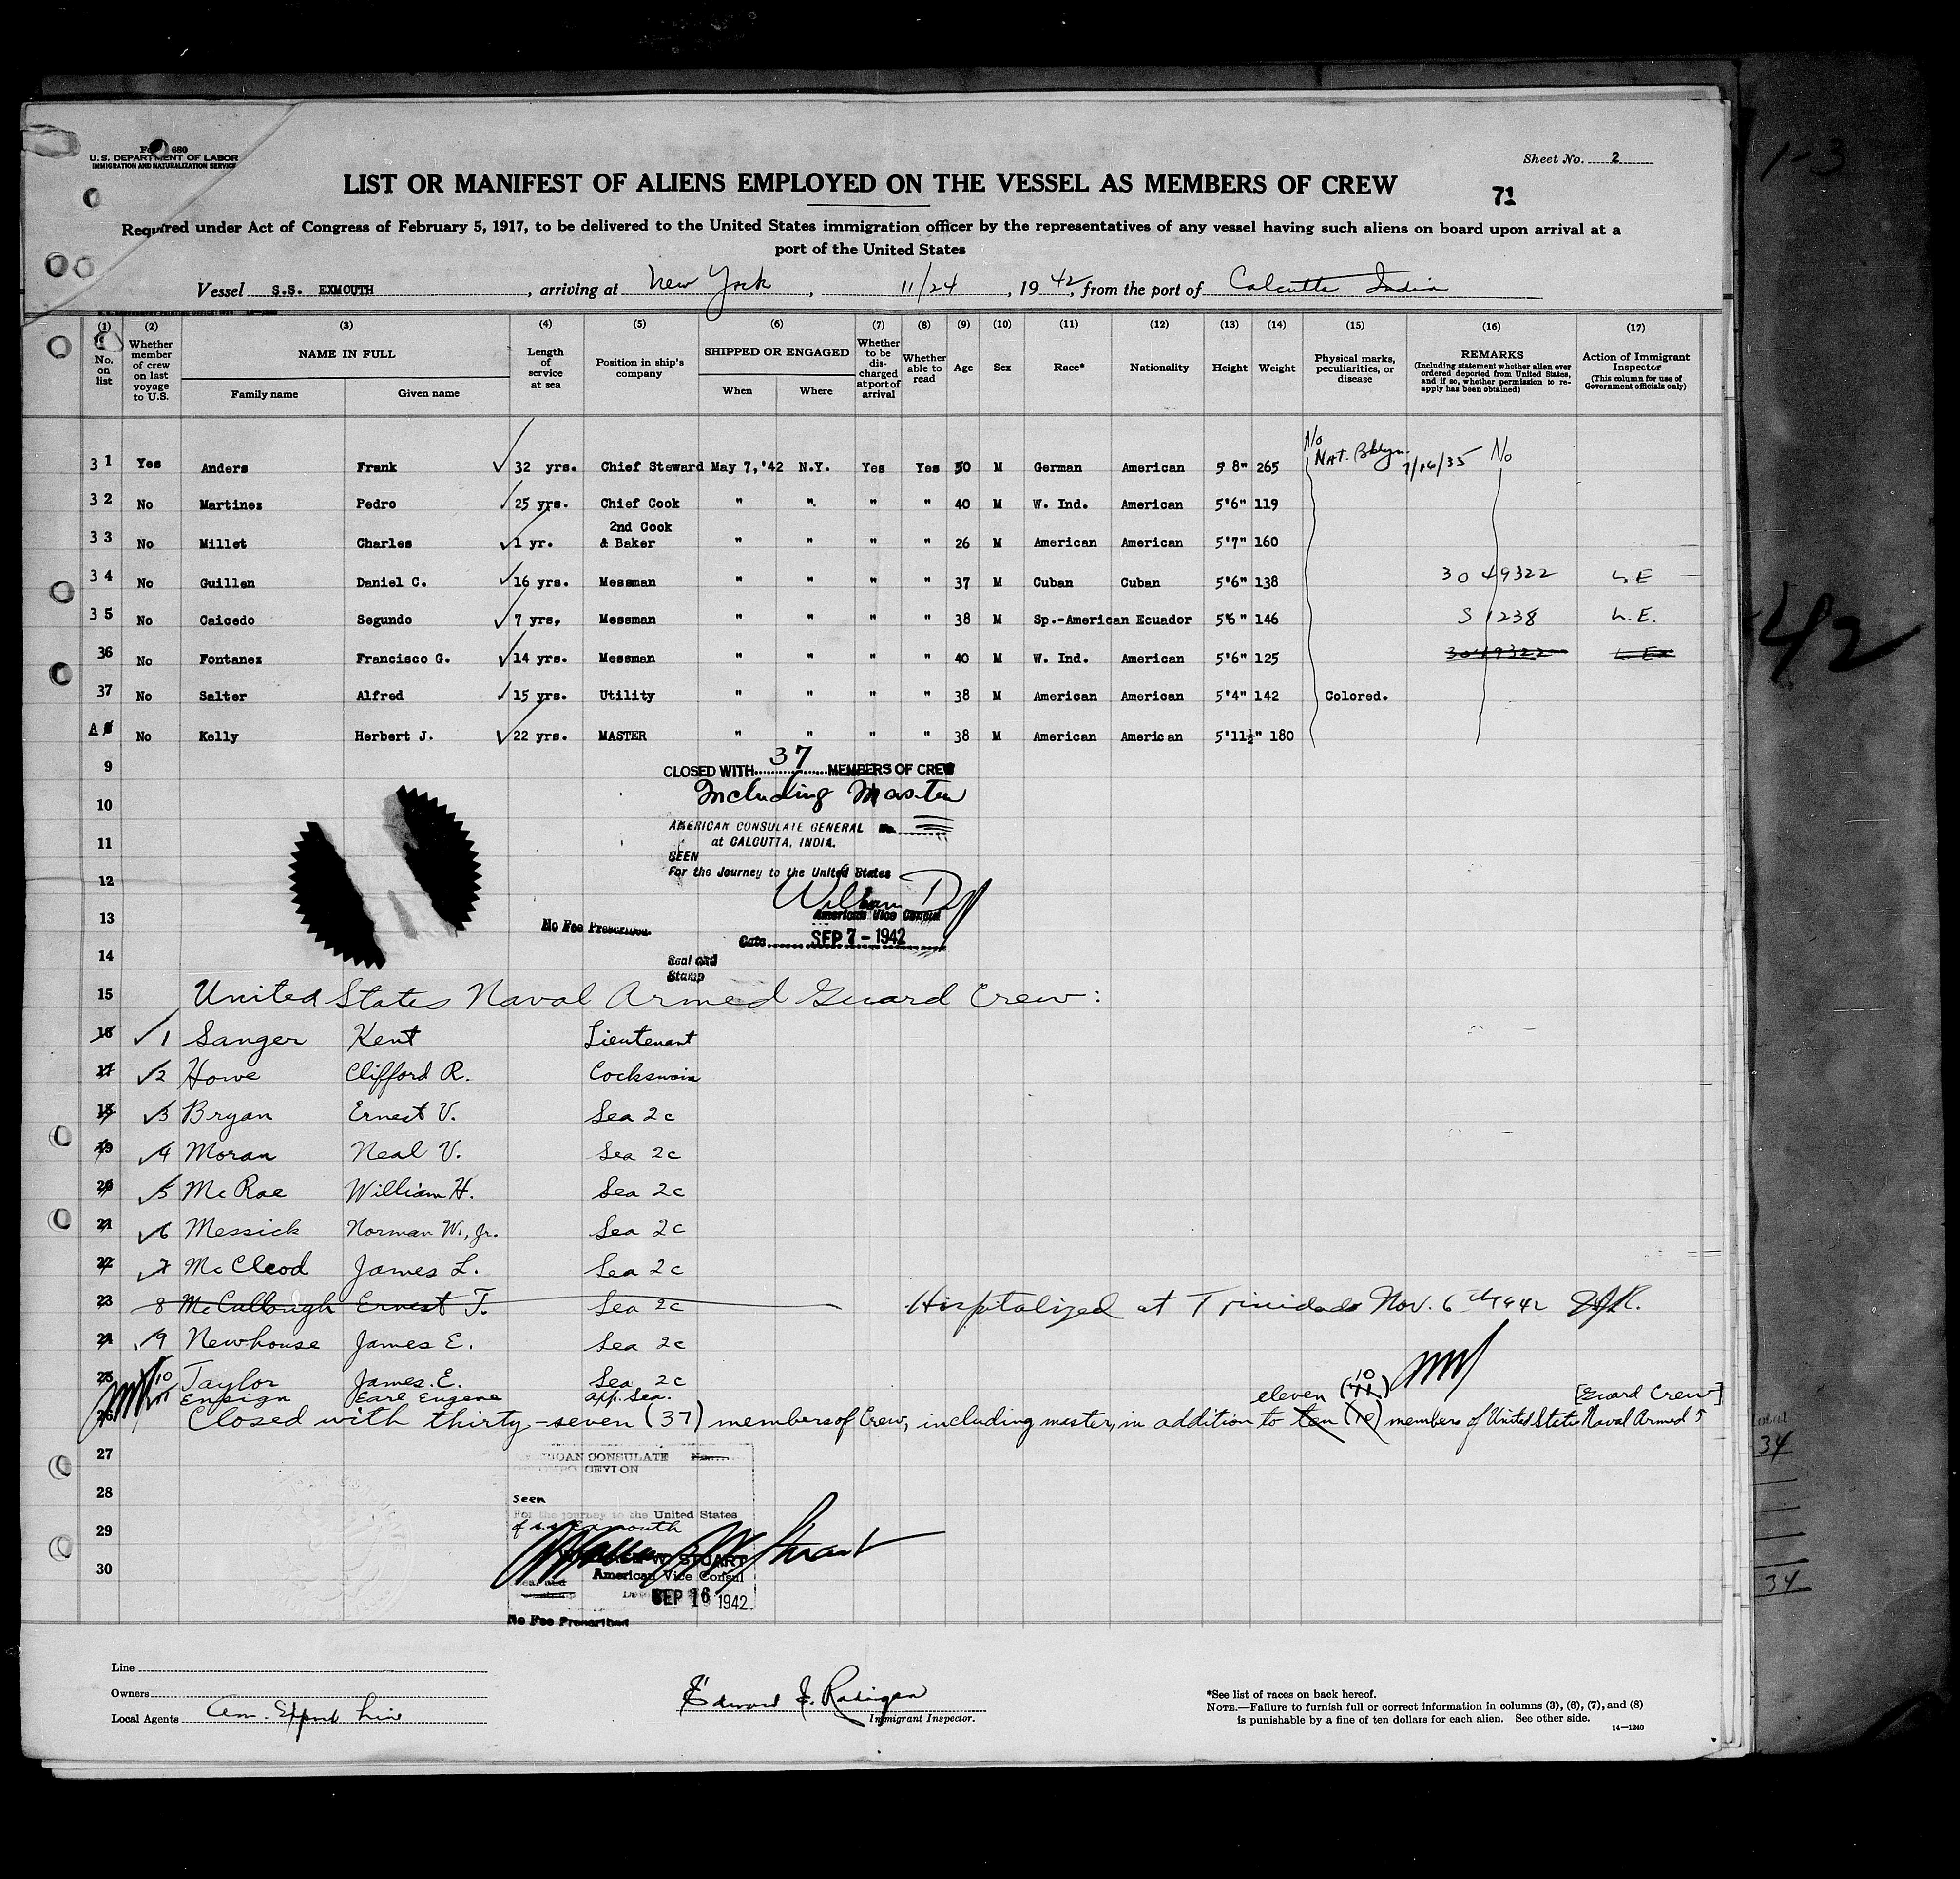 Form 680
U.S. DEPARTMENT OF LABOR
IMMIGRATION AND NATURALIZATION SERVICE
Sheet No. 2
1-3
LIST OR MANIFEST OF ALIENS EMPLOYED ON THE VESSEL AS MEMBERS OF CREW
71
Required under Act of Congress of February 5, 1917, to be delivered to the United States immigration officer by the representatives of any vessel having such aliens on board upon arrival at a
port of the United States
Vessel S.S. EXMOUTH, arriving at New York, 11/24, 1942, from the port of Calcutta India
(1) No. on list
(2) Whether member of crew on last voyage to U.S.
(3) NAME IN FULL Family name Given name
(4) Length of service at sea
(5) Position in ship's company
(6) SHIPPED OR ENGAGED When Where
(7) Whether to be discharged at port of arrival
(8) Whether able to read
(9) Age
(10) Sex
(11) Race*
(12) Nationality
(13) Height
(14) Weight
(15) Physical marks, peculiarities, or disease
(16) REMARKS (Including statement whether alien ever ordered deported from United States, and if so, whether permission to re-apply has been obtained)
(17) Action of Immigrant Inspector (This column for use of Government officials only)
31 Yes Anders Frank 32 yrs. Chief Steward May 7,'42 N.Y. Yes Yes 50 M German American 5 8" 265 No Nat. Bklyn. 7/16/35 No
32 No Martinez Pedro 25 yrs. Chief Cook " " " " 40 M W. Ind. American 5'6" 119
33 No Millet Charles 1 yr. 2nd Cook & Baker " " " " 26 M American American 5'7" 160
34 No Guillen Daniel C. 16 yrs. Messman " " " " 37 M Cuban Cuban 5'6" 138 3049322 L E
35 No Caicedo Segundo 7 yrs, Messman " " " " 38 M Sp.-American Ecuador 5'6" 146 S 1238 L.E.
36 No Fontanez Francisco G. 14 yrs. Messman " " " " 40 M W. Ind. American 5'6" 125 3049322 L. E
37 No Salter Alfred 15 yrs. Utility " " " " 38 M American American 5'4" 142 Colored.
A No Kelly Herbert J. 22 yrs. MASTER " " " " 38 M American American 5'11½" 180
42
9 CLOSED WITH 37 MEMBERS OF CREW
10 Including Master
AMERICAN CONSULATE GENERAL No.
11 at CALCUTTA, INDIA.
SEEN
12 For the Journey to the United States
William D
13 American Vice Consul
No Fee Prescribed.
Date SEP 7 - 1942
14 Seal and
Stamp
15 United States Naval Armed Guard Crew:
16 1 Sanger Kent Lieutenant
17 2 Howe Clifford R. Cockswain
18 3 Bryan Ernest V. Sea 2c
19 4 Moran Neal V. Sea 2c
20 5 McRae William H. Sea 2c
21 6 Messick Norman W., Jr. Sea 2c
22 7 McCleod James L. Sea 2c
23 8 McCullough Ernest T. Sea 2c Hospitalized at Trinidad Nov. 6th 1942
24 9 Newhouse James E. Sea 2c
25 10 Taylor James E. Sea 2c
11 Ensign Earl Eugene app. Sea. eleven (11) 10 [Guard Crew]
26 Closed with thirty-seven (37) members of Crew, including master, in addition to ten (10) members of United States Naval Armed
27 AMERICAN CONSULATE
COLOMBO CEYLON
28 seen
For the journey to the United States
29 of s.s. Exmouth
W. STUART
30 American Vice Consul
Seal and
Date SEP 16 1942
No Fee Prescribed
total
34
34
Line
Owners
Local Agents Am. Export Line
Edward J. Radigan
Immigrant Inspector.
*See list of races on back hereof.
NOTE.—Failure to furnish full or correct information in columns (3), (6), (7), and (8)
is punishable by a fine of ten dollars for each alien. See other side.
14—1240